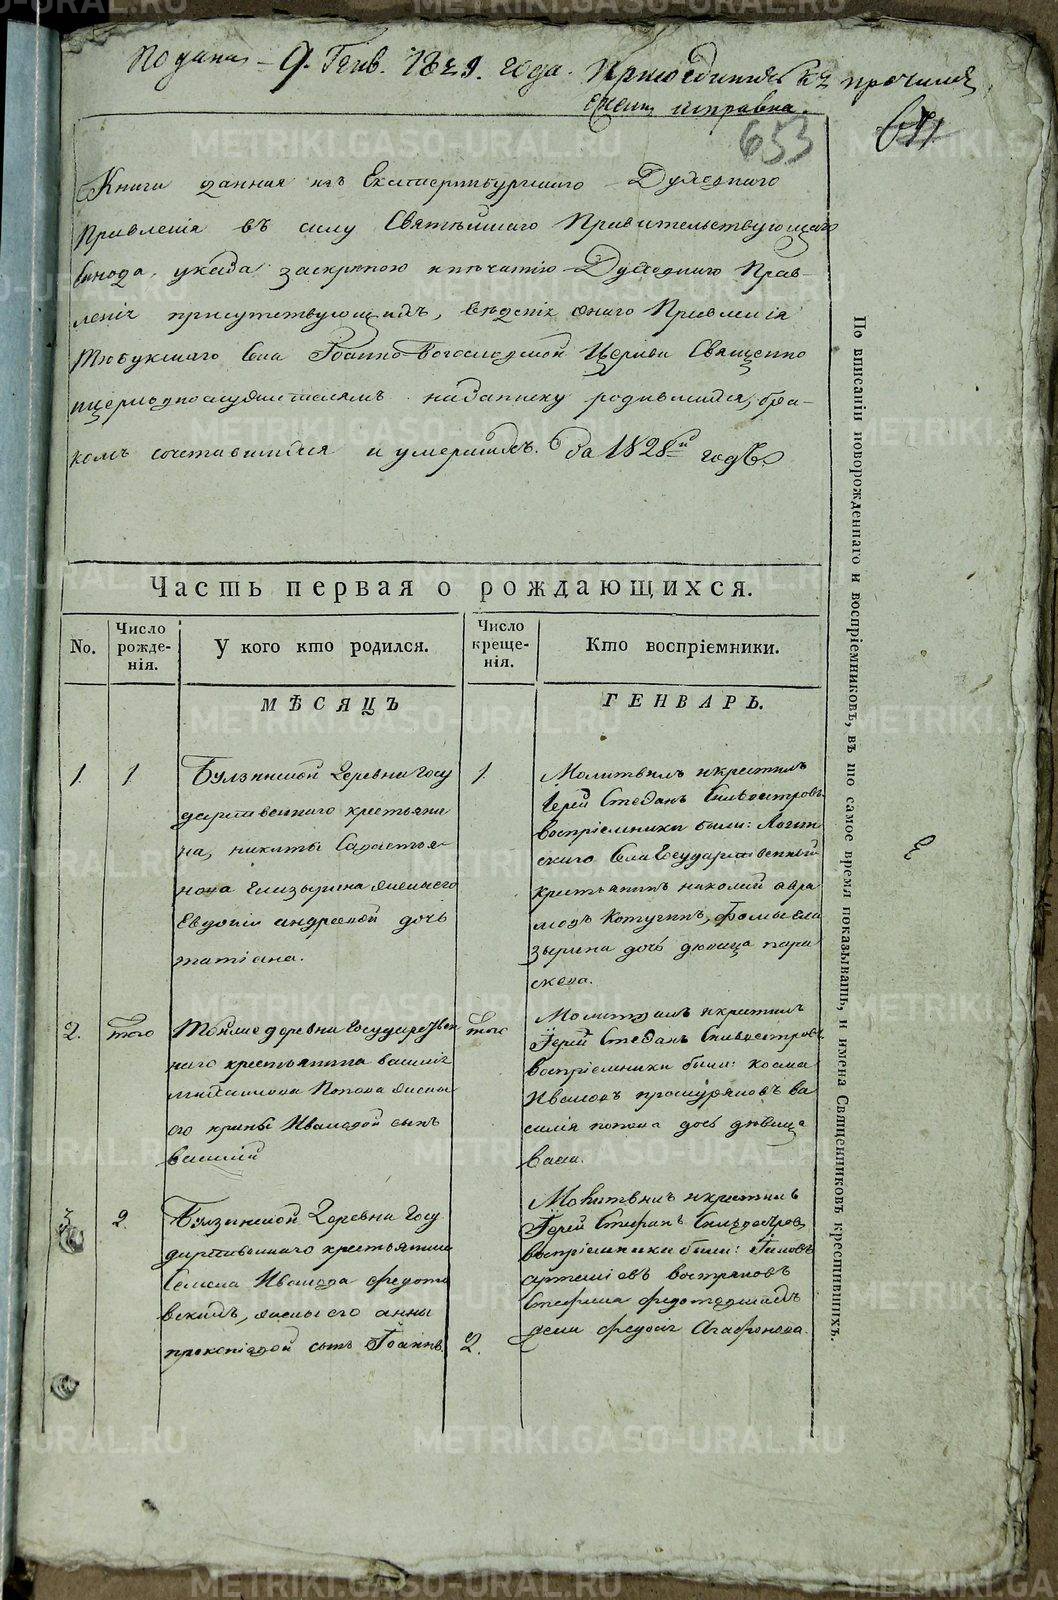 Подана 9. Генв. 1829. года. Присоединить къ прочимъ
исправна.
653
Книга данная изъ Екатеринбургскаго Духовнаго
Правленія въ силу Святѣйшаго Правительствующаго
Сѵнода указа, за скрепою и печатію Духовнаго Прав-
ленія присутствующихъ, вѣденія онаго Правленія
Тюбукскаго Села Іоанно Богословской Церкви Священно
церковнослужителямъ на записку родившихся, бра-
комъ сочетавшихся и умершихъ. За 1828й годъ.
Часть первая о рождающихся.
No.
Число рожденія.
У кого кто родился.
Число крещенія.
Кто воспріемники.
МѢСЯЦЪ
ГЕНВАРЬ.
1.
1
Булзинской Деревни Госу
дарственнаго крестьяни
на, никиты Савастья-
нова Елизарьева жены его
Евдокіи андреевой дочь
татіана.
1.
Молитвилъ и крестилъ
Іерей Стефанъ Сильвестровъ
воспріемники были:
скаго Села Государственный
крестьянинъ николай авра
мовъ Кочугинъ, Фомы Ели
зарьева дочь девица пара
скева.
2.
того
Тойже деревни Государствен
наго крестьянина василія
михайлова Попова жены
его ирины Ивановой сынъ
Василій
того
Молитвилъ и крестилъ
Іерей Стефанъ Сильвестровъ
воспріемники были: козма
Ивановъ проскуряковъ ва
силія попова дочь дѣвица
васса.
3.
2.
Булзинской Деревни Госу
дарственнаго крестьянина
Семена Иванова федотов
скихъ, жены его анны
прокопіевой сынъ Іоаннъ
2.
Молитвилъ и крестилъ
Іерей Стефанъ Сильвестровъ
воспріемники были: Іаковъ
артеміевъ востряковъ
Стефана федотовскихъ
жена федосія Агафонова.
По вписаніи новорожденнаго и воспріемниковъ, въ то самое время показывать, и имена Священниковъ крестившихъ.
METRIKI.GASO-URAL.RU